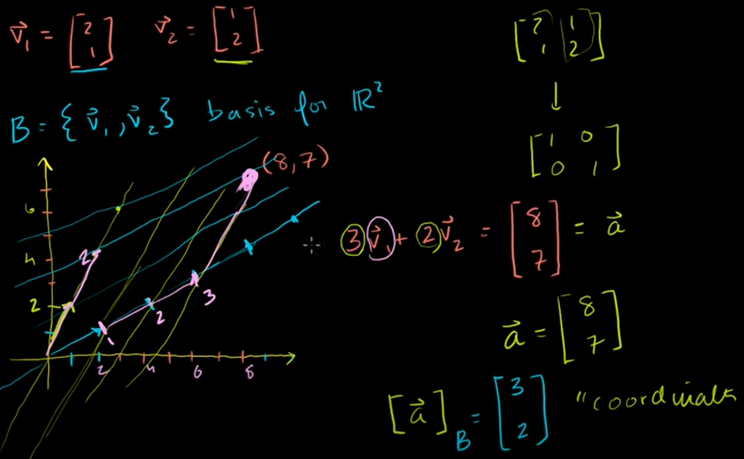 v⃗₁ = [2 1] v⃗₂ = [1 2]
[2 1
1 2]
B = {v⃗₁, v⃗₂} basis for ℝ²
↓
[1 0
0 1]
(8,7)
6
4
2
2
1
2
3
2 4 6 8
3v⃗₁ + 2v⃗₂ = [8 7] = a⃗
a⃗ = [8 7]
[a⃗]_B = [3 2] "coordinat